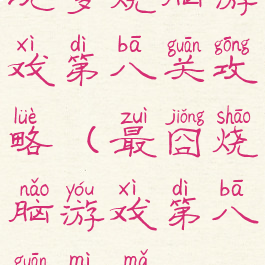 xì dì bā guān gōng
戏第八关攻
lüè zuì jiǒng shāo
略（最囧烧
nǎo yóu xì dì bā
脑游戏第八
guān mì mǎ